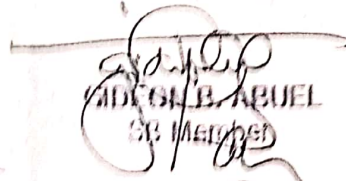 GIDEON B. ABUEL
SB Member